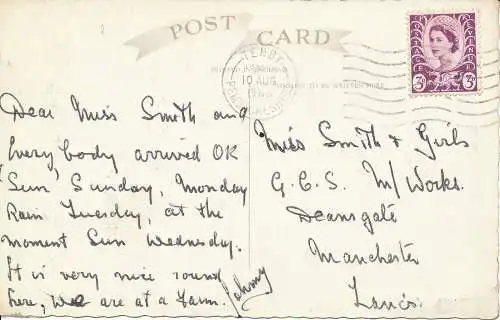 POST CARD
TENBY
10 AUG
PEMBROKESHIRE
3D 3D
Dear Miss Smith and
Everybody arrived OK
Sun Sunday, Monday
Rain Tuesday, at the
moment Sun Wednesday.
It is very nice round
here, We are at a Farm. Johnny
Miss Smith & Girls
G.C.S. M/Works.
Deansgate
Manchester
Lancs.